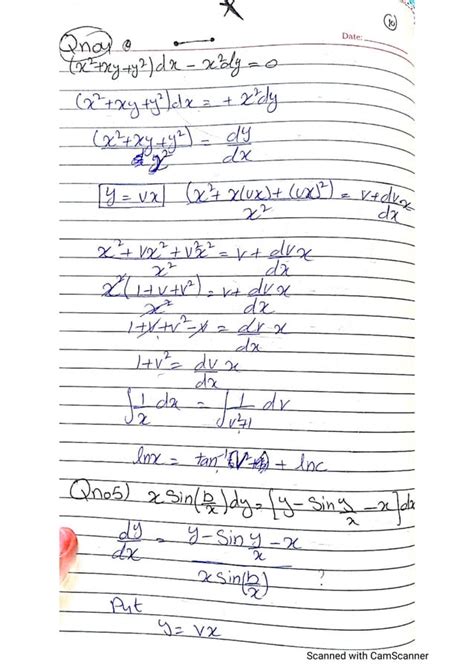 (10)
Date:
Qno1)
(x²+xy+y²)dx - x²dy = 0
(x²+xy+y²)dx = + x²dy
(x²+xy+y²)/x² = dy/dx
y = vx (x²+x(vx)+(vx)²)/x² = v+dv/dx x
(x²+vx²+v²x²)/x² = v + dv/dx x
x²(1+v+v²)/x² = v+ dv/dx x
1+v+v²-v = dv/dx x
1+v² = dv/dx x
∫1/x dx = ∫1/(v²+1) dv
lnx = tan⁻¹ + lnc
Qno5) x Sin(/x)dy = [y - Sin y/x - x]dx
dy/dx = (y - Sin y/x - x)/(x sin(/x)) ?
Put
y = vx
Scanned with CamScanner